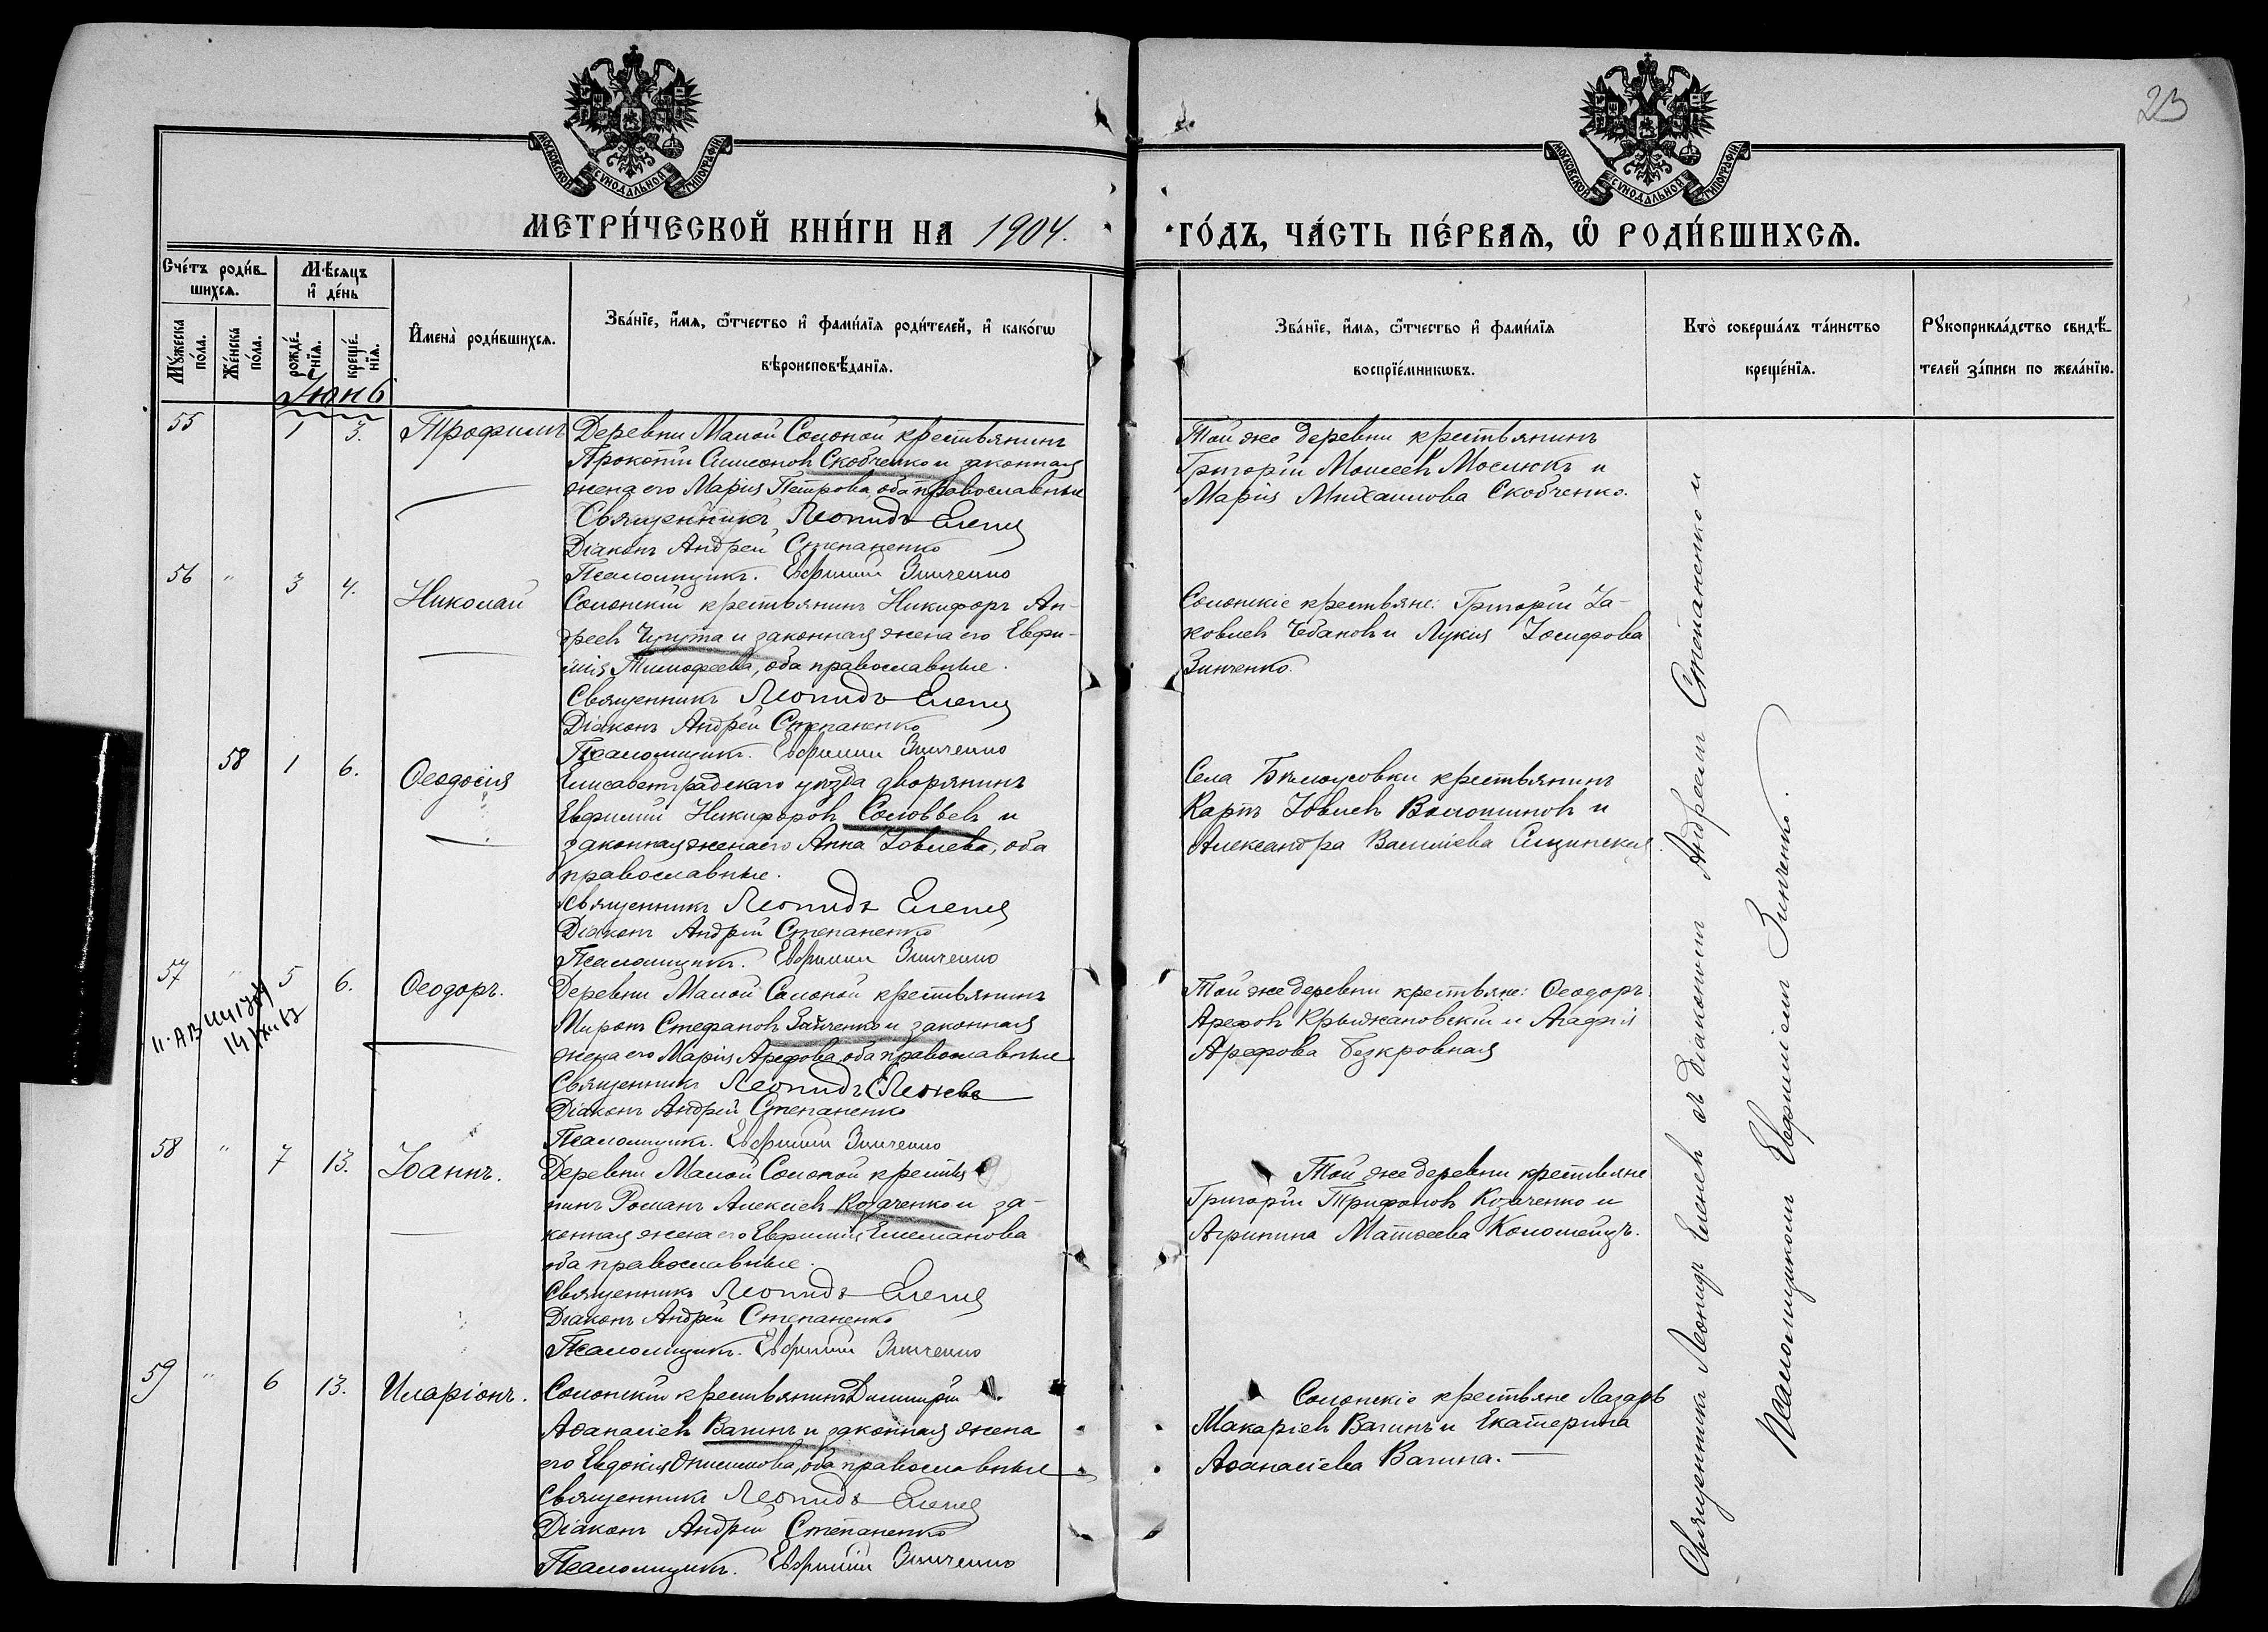 23
МОСКОВСКОЙ СУНОДАЛЬНОЙ ТИПОГРАФІИ
МОСКОВСКОЙ СУНОДАЛЬНОЙ ТИПОГРАФІИ
МЕТРИ́ЧЕСКОЙ КНИ́ГИ НА 1904.
ГО́ДЪ, ЧА́СТЬ ПЕ́РВАѦ, Ѡ РОДИ́ВШИХСѦ.
Сче́тъ роди́в-
шихсѧ.
Мѣ́сѧцъ
и҆ де́нь
Мꙋ́жеска
по́ла.
Же́нска
по́ла.
рожде́-
нїѧ.
креще́-
нїѧ.
И҆мена̀ роди́вшихсѧ.
Зва́нїе, и҆́мѧ, ѻ҆́тчество и҆ фами́лїѧ роди́телей, и҆ како́гѡ
вѣроисповѣ́данїѧ.
Зва́нїе, и҆́мѧ, ѻ҆́тчество и҆ фами́лїѧ
воспрїе́мникѡвъ.
Кто̀ соверша́лъ та́инство
креще́нїѧ.
Рꙋкоприкла́дство свидѣ́-
телей за́писи по жела́нїю.
Іюнь
55 1 3. Трофимъ
Деревни Малой Солоной крестьянинъ
Прокопій Симеоновъ Скобченко и законная
жена его Марія Петрова, оба православные
Священникъ Леонидъ Еленевъ
Діаконъ Андрей Степаненко
Псаломщикъ. Евфимій Зинченко
Той же деревни крестьянинъ
Григорій Моисеевъ Мосюкъ и
Марія Михаилова Скобченко.
56 " 3 4. Николай
Солонскій крестьянинъ Никифоръ Ан-
дреевъ и законная жена его Евфи-
мія Тимофеева, оба православные.
Священникъ Леонидъ Еленевъ
Діаконъ Андрей Степаненко
Псаломщикъ. Евфимій Зинченко
Солонскіе крестьяне: Григорій Іа-
ковлевъ Чебановъ и Лукія Іосифова
Зинченко.
58 1 6. Ѳеодосія
Елисаветградскаго уѣзда дворянинъ
Евфимій Никифоровъ Соловьевъ и
законная жена его Анна Іовлева, оба
православные.
Священникъ Леонидъ Еленевъ
Діаконъ Андрей Степаненко
Псаломщикъ. Евфимій Зинченко
Села Бѣлоусовки крестьянинъ
Карпъ Іовлевъ Волошиновъ и
Александра Василіева
57 " 5 6. Ѳеодоръ.
Деревни Малой Солоной крестьянинъ
Миронъ Стефановъ Зайченко и законная
жена его Марія Арефова, оба православные
Священникъ Леонидъ Еленевъ
Діаконъ Андрей Степаненко
Псаломщикъ. Евфимій Зинченко
Той же деревни крестьяне: Ѳеодоръ
Арефовъ Крыжановскій и Агафія
Арефова Безкровная
58 " 7 13. Іоаннъ.
Деревни Малой Солоной крестья
нинъ Романъ Алексіевъ Козаченко и за-
конная жена его Евфимія Емеліанова
оба православные.
Священникъ Леонидъ Еленевъ
Діаконъ Андрей Степаненко
Псаломщикъ. Евфимій Зинченко
Той же деревни крестьяне
Григорій Трифоновъ Козаченко и
Агрипина Матѳеева Коломеецъ.
59 " 6 13. Иларіонъ.
Солонскій крестьянинъ Димитрій
Аѳанасіевъ Вагинъ и законная жена
его Евдокія Онисимова, оба православные
Священникъ Леонидъ Еленевъ
Діаконъ Андрей Степаненко
Псаломщикъ. Евфимій Зинченко
Солонскіе крестьяне Лазарь
Макаріевъ Вагинъ и Екатерина
Аѳанасіева Вагина.
Священникъ Леонидъ Еленевъ съ діакономъ Андреемъ Степаненко и
псаломщикомъ Евфиміемъ Зинченко.